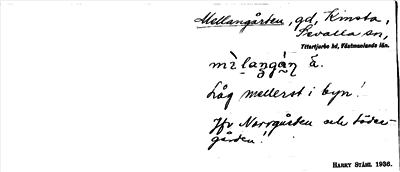 Mellangården, gd, Kimsta,
Sevalla sn,
Yttertjurbo hd, Västmanlands län.
mìlaŋgáṇ ă.
Låg mellerst i byn!
Jfr Norrgården och Söder-
gården!
HARRY STÅHL 1936.